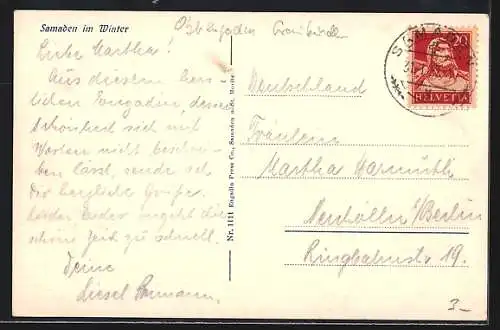 Samaden im Winter
Liebe Martha!
Aus diesem herr-
lichen Engadin, dessen
Schönheit sich mit
Worten nicht beschrei-
ben lässt, sende ich
Dir herzliche Grüße.
Leider vergeht die
schöne Zeit zu schnell.
Deine
Liesel
Nr. 1111 Engadin Press Co., Samaden
20
HELVETIA
Deutschland
Fräulein
Martha
Neukölln b/Berlin
Ringbahnstr 19.
3-